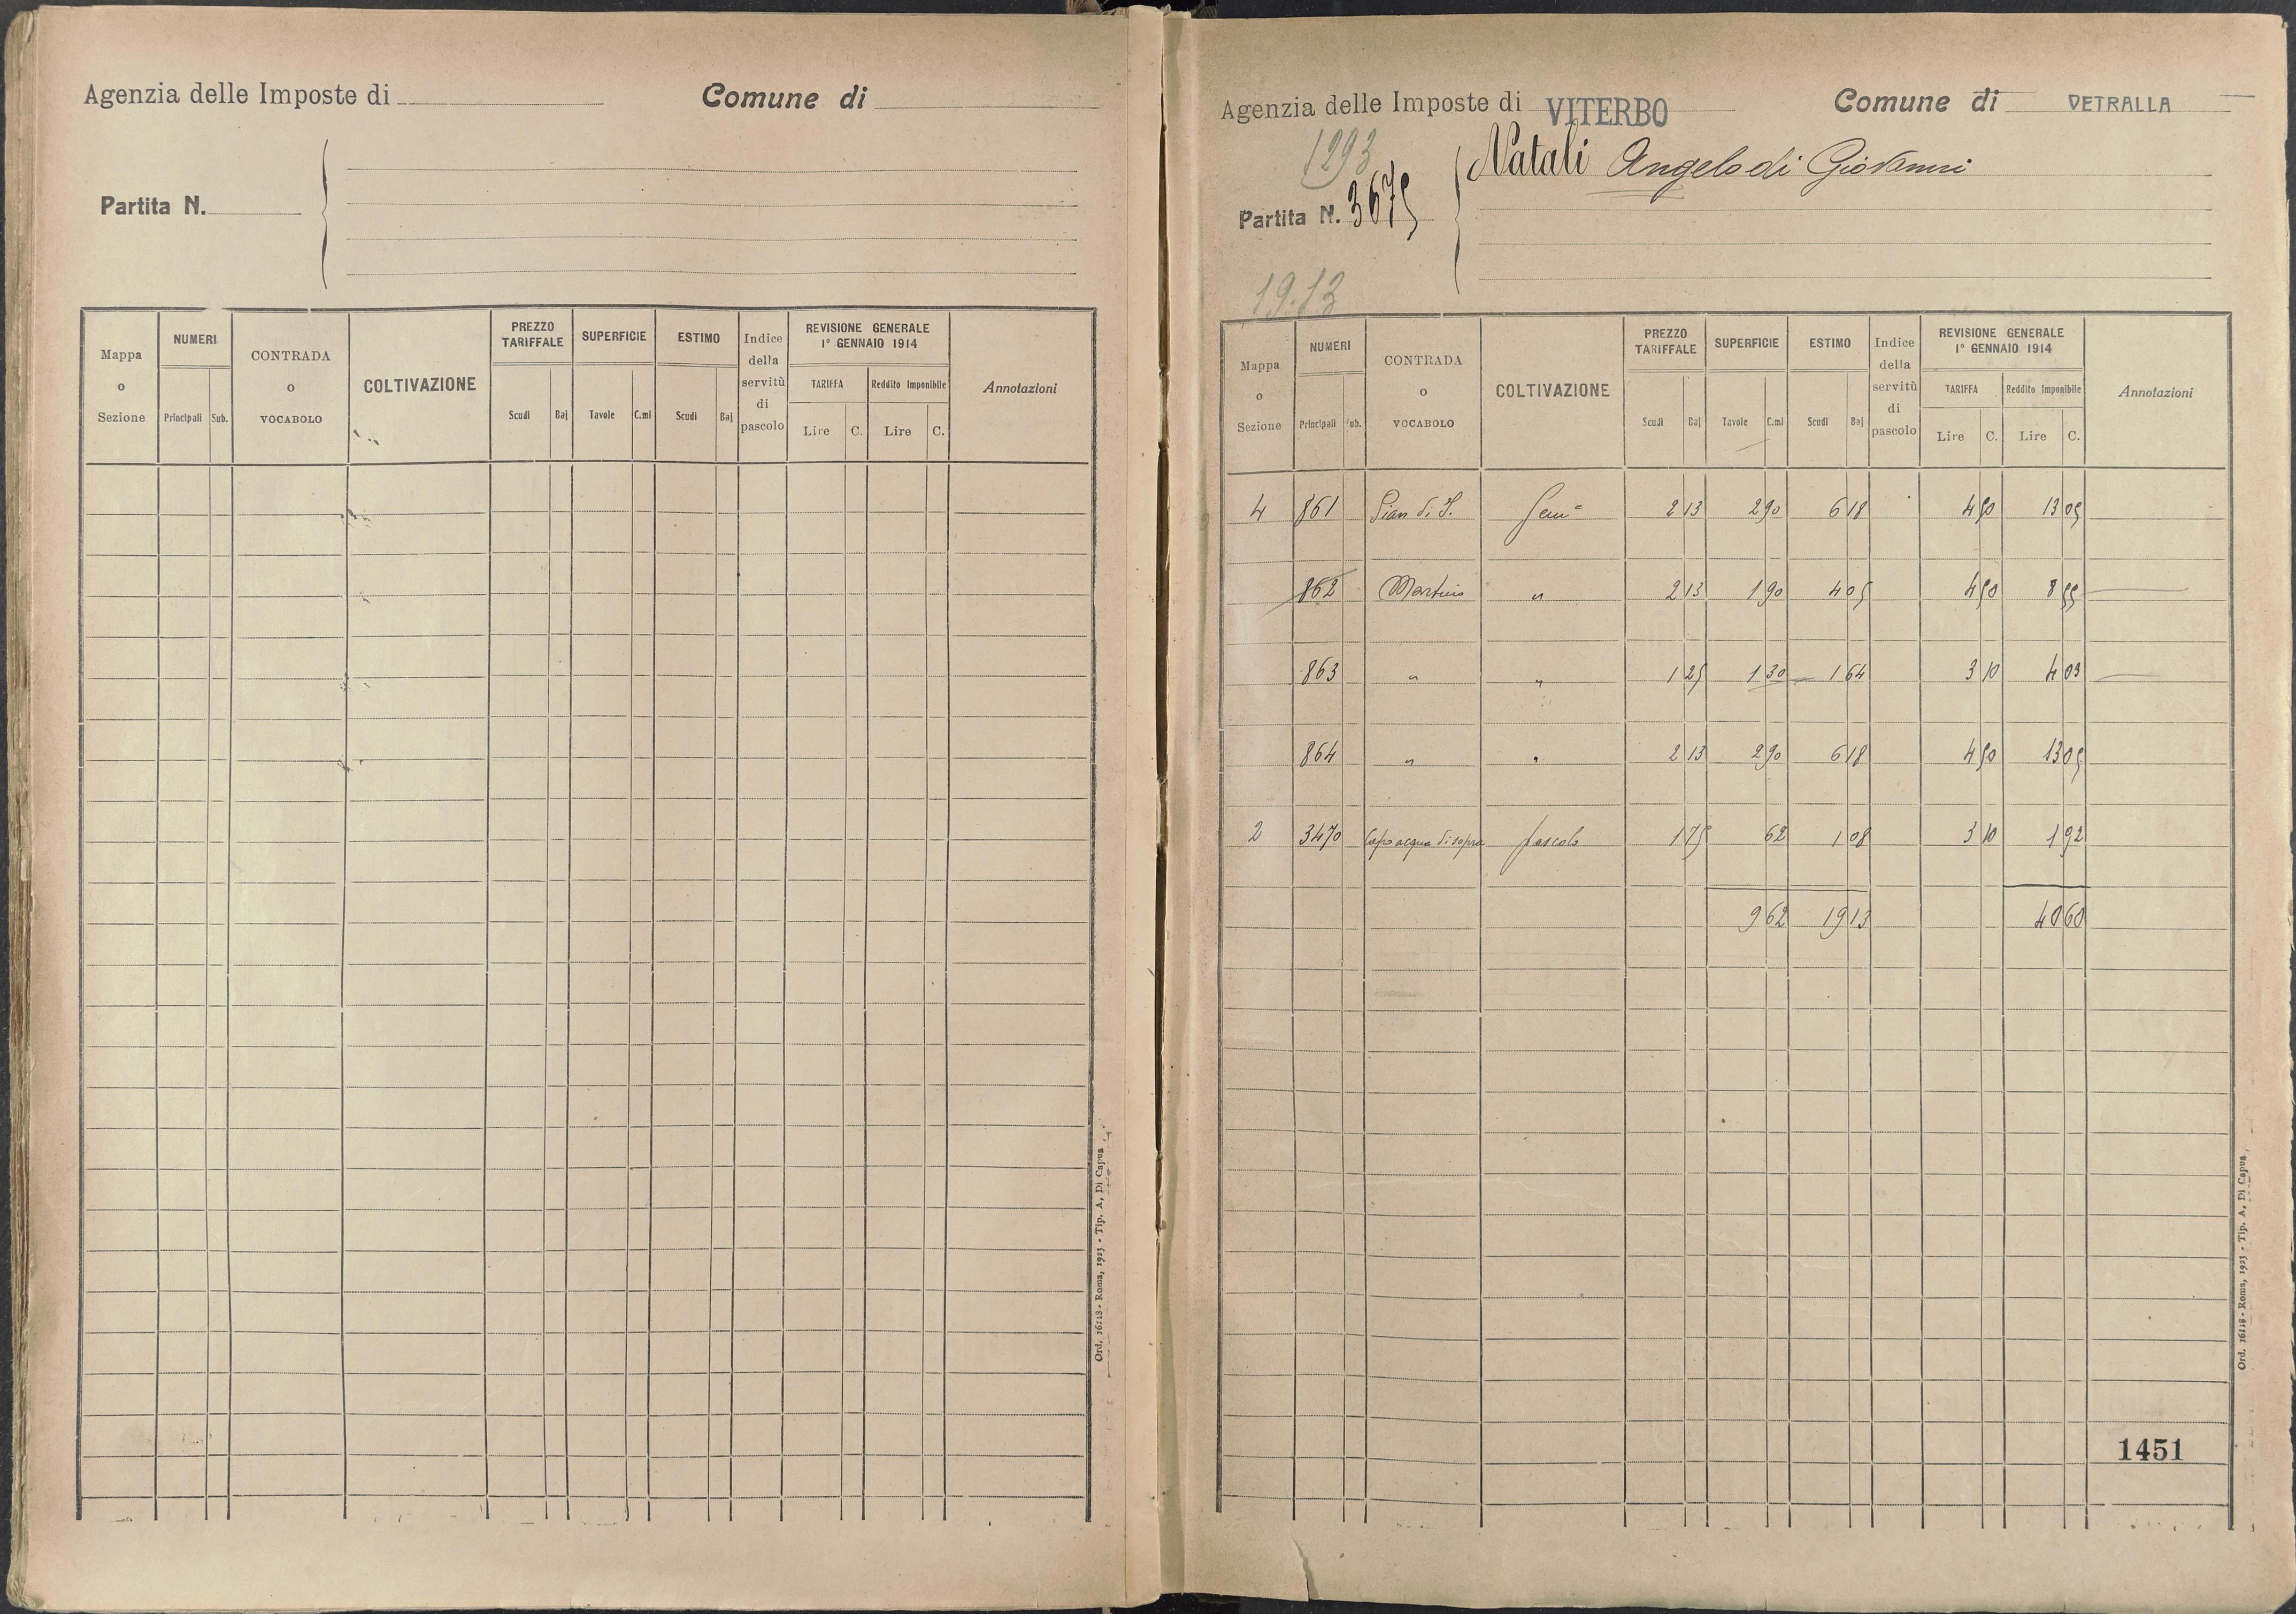 Agenzia delle Imposte di
Comune di
Partita N.
Mappa o Sezione
NUMERI
Principali
Sub.
CONTRADA o VOCABOLO
COLTIVAZIONE
PREZZO TARIFFALE
Scudi
Baj
SUPERFICIE
Tavole
C.mi
ESTIMO
Scudi
Baj
Indice della servitù di pascolo
REVISIONE GENERALE
1° GENNAIO 1914
TARIFFA
Lire
C.
Reddito Imponibile
Lire
C.
Annotazioni
Ord. 16118 - Roma, 1923 - Tip. A. Di Capua
Agenzia delle Imposte di VITERBO
Comune di VETRALLA
1293
Partita N. 3675
Natali Angelo di Giovanni
19.13
Mappa o Sezione
NUMERI
Principali
Sub.
CONTRADA o VOCABOLO
COLTIVAZIONE
PREZZO TARIFFALE
Scudi
Baj
SUPERFICIE
Tavole
C.mi
ESTIMO
Scudi
Baj
Indice della servitù di pascolo
REVISIONE GENERALE
1° GENNAIO 1914
TARIFFA
Lire
C.
Reddito Imponibile
Lire
C.
Annotazioni
4 861 Pian di S. Sem° 2 13 2 90 6 18 4 50 13 05
862 Martino " 2 13 1 90 4 05 4 50 8 55
863 " " 1 25 1 30 1 64 3 10 4 03
864 " " 2 13 2 90 6 18 4 50 13 05
2 3470 Capo acqua di sopra pascolo 1 75 62 1 08 3 10 1 92
9 62 19 13 40 60
1451
Ord. 16118 - Roma, 1923 - Tip. A. Di Capua